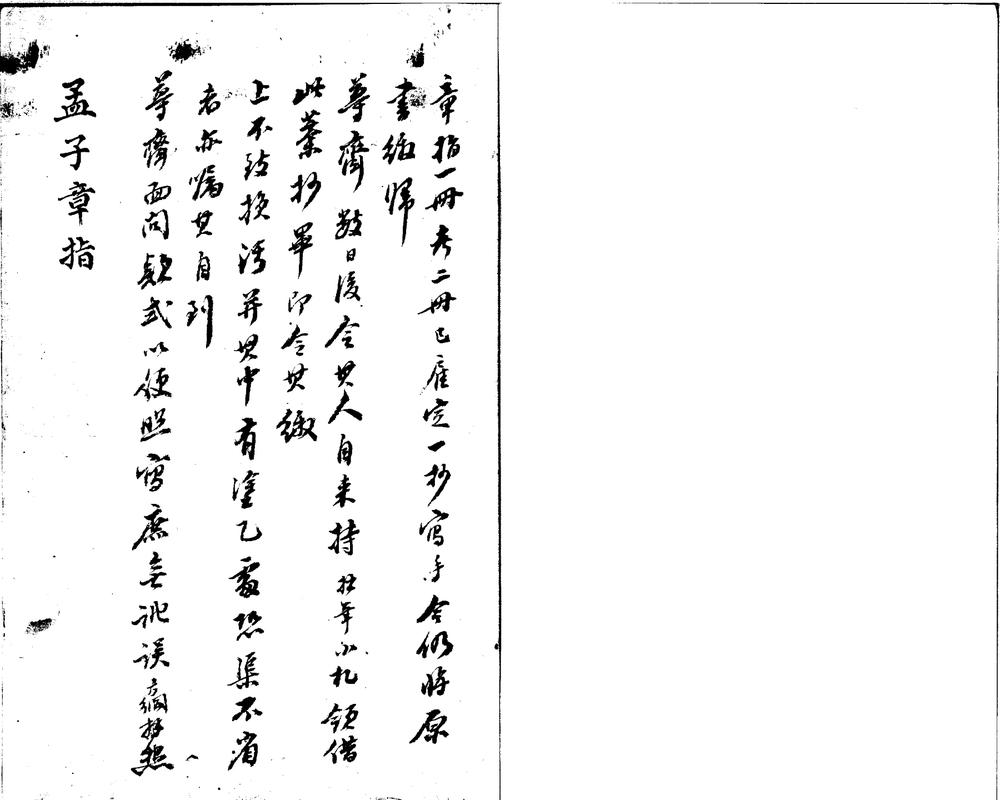 章指一冊考二冊已雇定一抄寫手今仍將原
書繳歸
尊齋數日後令其人自來持拙筆小札領借
此藁抄畢即令其繳
上不致損污並其中有塗乙處恐渠不省
者亦囑其自到
尊齋面問疑式以便照寫庶無訛誤
孟子章指